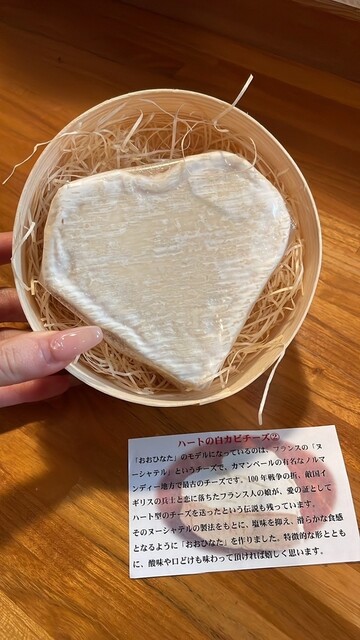 ハートの白カビチーズの
「おおひなた」のモデルになっているのは、フランスの「ヌ
ーシャテル」というチーズで、カマンベールの有名なノルマ
ンディー地方で最古のチーズです。100年戦争の折、敵国イ
ギリスの兵士と恋に落ちたフランス人の娘が、愛の証として
ハート型のチーズを送ったという伝説も残っています。
そのヌーシャテルの製法をもとに、塩味を抑え、滑らかな食感
となるように「おおひなた」を作りました。特徴的な形ととも
に、酸味や口どけも味わって頂ければ嬉しく思います。